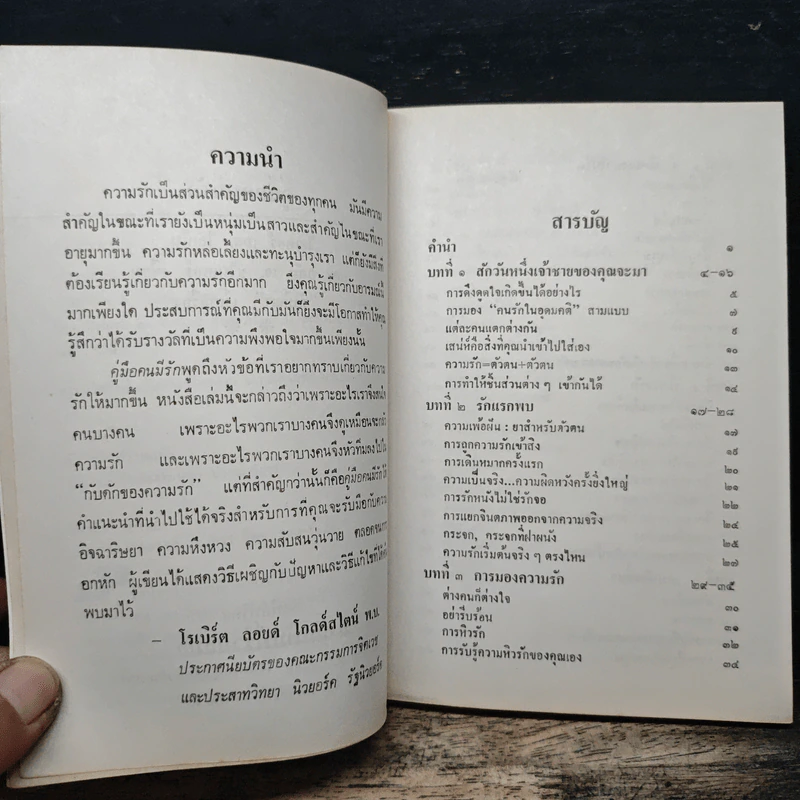 ความนำ
ความรักเป็นส่วนสำคัญของชีวิตของทุกคน มันมีความ
สำคัญในขณะที่เรายังเป็นหนุ่มเป็นสาวและสำคัญในขณะที่เรา
อายุมากขึ้น ความรักหล่อเลี้ยงและทะนุบำรุงเรา แต่ก็ยังมีสิ่งที่
ต้องเรียนรู้เกี่ยวกับความรักอีกมาก ยิ่งคุณรู้เกี่ยวกับอารมณ์นี้
มากเพียงใด ประสบการณ์ที่คุณมีกับมันก็ยิ่งจะมีโอกาสทำให้คุณ
รู้สึกว่าได้รับรางวัลที่เป็นความพึงพอใจมากขึ้นเพียงนั้น
คู่มือคนมีรักพูดถึงหัวข้อที่เราอยากทราบเกี่ยวกับความ
รักให้มากขึ้น หนังสือเล่มนี้จะกล่าวถึงว่าเพราะอะไรเราจึง
คนบางคน เพราะอะไรพวกเราบางคนจึงดูเหมือนจะกลัว
ความรัก และเพราะอะไรพวกเราบางคนจึงหัวทิ่มลงไปใน
“กับดักของความรัก” แต่ที่สำคัญกว่านั้นก็คือคู่มือคนมีรักให้
คำแนะนำที่นำไปใช้ได้จริงสำหรับการที่คุณจะรับมือกับความ
อิจฉาริษยา ความหึงหวง ความสับสนวุ่นวาย ตลอดจนการ
อกหัก ผู้เขียนได้แสดงวิธีเผชิญกับปัญหาและวิธีแก้ไขที่ได้
พบมาไว้
– โรเบิร์ต ลอยด์ โกลด์สไตน์ พ.บ.
ประกาศนียบัตรของคณะกรรมการจิตเวช
และประสาทวิทยา นิวยอร์ค รัฐนิวยอร์ค
สารบัญ
คำนำ ๑
บทที่ ๑ สักวันหนึ่งเจ้าชายของคุณจะมา ๔–๑๖
การดึงดูดใจเกิดขึ้นได้อย่างไร ๕
การมอง “คนรักในอุดมคติ” สามแบบ ๗
แต่ละคนแตกต่างกัน ๙
เสน่ห์คือสิ่งที่คุณนำเข้าไปใส่เอง ๑๐
ความรัก=ตัวตน+ตัวตน ๑๓
การทำให้ชิ้นส่วนต่าง ๆ เข้ากันได้ ๑๔
บทที่ ๒ รักแรกพบ ๑๗–๒๘
ความเพ้อฝัน : ยาสำหรับตัวตน ๑๗
การถูกความรักเข้าสิง ๑๙
การเดินหมากครั้งแรก ๒๐
ความเป็นจริง...ความผิดหวังครั้งยิ่งใหญ่ ๒๑
การรักหนังไม่ใช่รักจอ ๒๒
การแยกจินตภาพออกจากความจริง ๒๔
กระจก, กระจกที่ฝาผนัง ๒๕
ความรักเริ่มต้นจริง ๆ ตรงไหน ๒๗
บทที่ ๓ การมองความรัก ๒๙–๓๕
ต่างคนก็ต่างใจ ๓๐
อย่ารีบร้อน ๓๑
การหิวรัก ๓๒
การรับรู้ความหิวรักของคุณเอง ๓๔